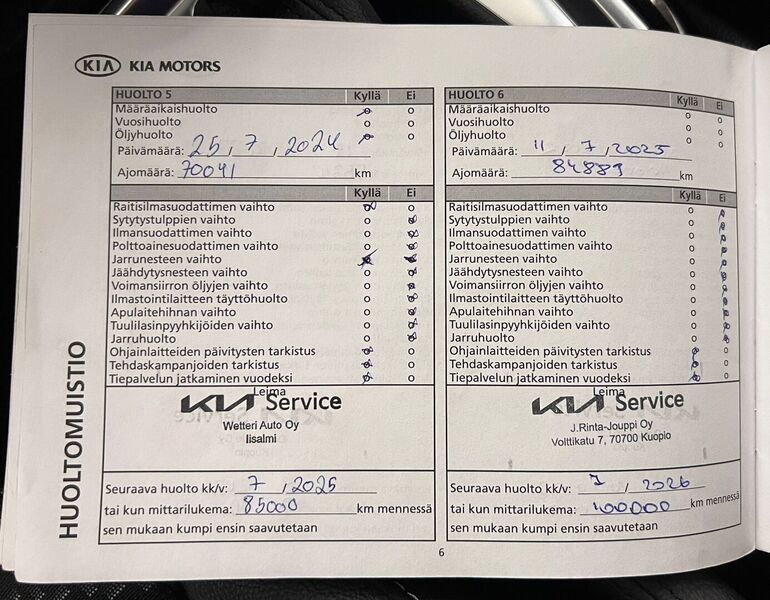 KIA KIA MOTORS
HUOLTOMUISTIO
HUOLTO 5 Kyllä Ei
Määräaikaishuolto o o
Vuosihuolto o o
Öljyhuolto o o
Päivämäärä: 25 , 7 , 2024
Ajomäärä: 70041 km
Kyllä Ei
Raitisilmasuodattimen vaihto o o
Sytytystulppien vaihto o o
Ilmansuodattimen vaihto o o
Polttoainesuodattimen vaihto o o
Jarrunesteen vaihto o o
Jäähdytysnesteen vaihto o o
Voimansiirron öljyjen vaihto o o
Ilmastointilaitteen täyttöhuolto o o
Apulaitehihnan vaihto o o
Tuulilasinpyyhkijöiden vaihto o o
Jarruhuolto o o
Ohjainlaitteiden päivitysten tarkistus o
Tehdaskampanjoiden tarkistus o
Tiepalvelun jatkaminen vuodeksi o
Leima
KIA Service
Wetteri Auto Oy
Iisalmi
Seuraava huolto kk/v: 7 , 2025
tai kun mittarilukema: 85000 km mennessä
sen mukaan kumpi ensin saavutetaan
HUOLTO 6 Kyllä Ei
Määräaikaishuolto o o
Vuosihuolto o o
Öljyhuolto o o
Päivämäärä: 11 , 7 , 2025
Ajomäärä: 84889 km
Kyllä Ei
Raitisilmasuodattimen vaihto o o
Sytytystulppien vaihto o o
Ilmansuodattimen vaihto o o
Polttoainesuodattimen vaihto o o
Jarrunesteen vaihto o o
Jäähdytysnesteen vaihto o o
Voimansiirron öljyjen vaihto o o
Ilmastointilaitteen täyttöhuolto o o
Apulaitehihnan vaihto o o
Tuulilasinpyyhkijöiden vaihto o o
Jarruhuolto o o
Ohjainlaitteiden päivitysten tarkistus o o
Tehdaskampanjoiden tarkistus o o
Tiepalvelun jatkaminen vuodeksi o o
Leima
KIA Service
J.Rinta-Jouppi Oy
Volttikatu 7, 70700 Kuopio
Seuraava huolto kk/v: 7 / 2026
tai kun mittarilukema: 100000 km mennessä
sen mukaan kumpi ensin saavutetaan
6